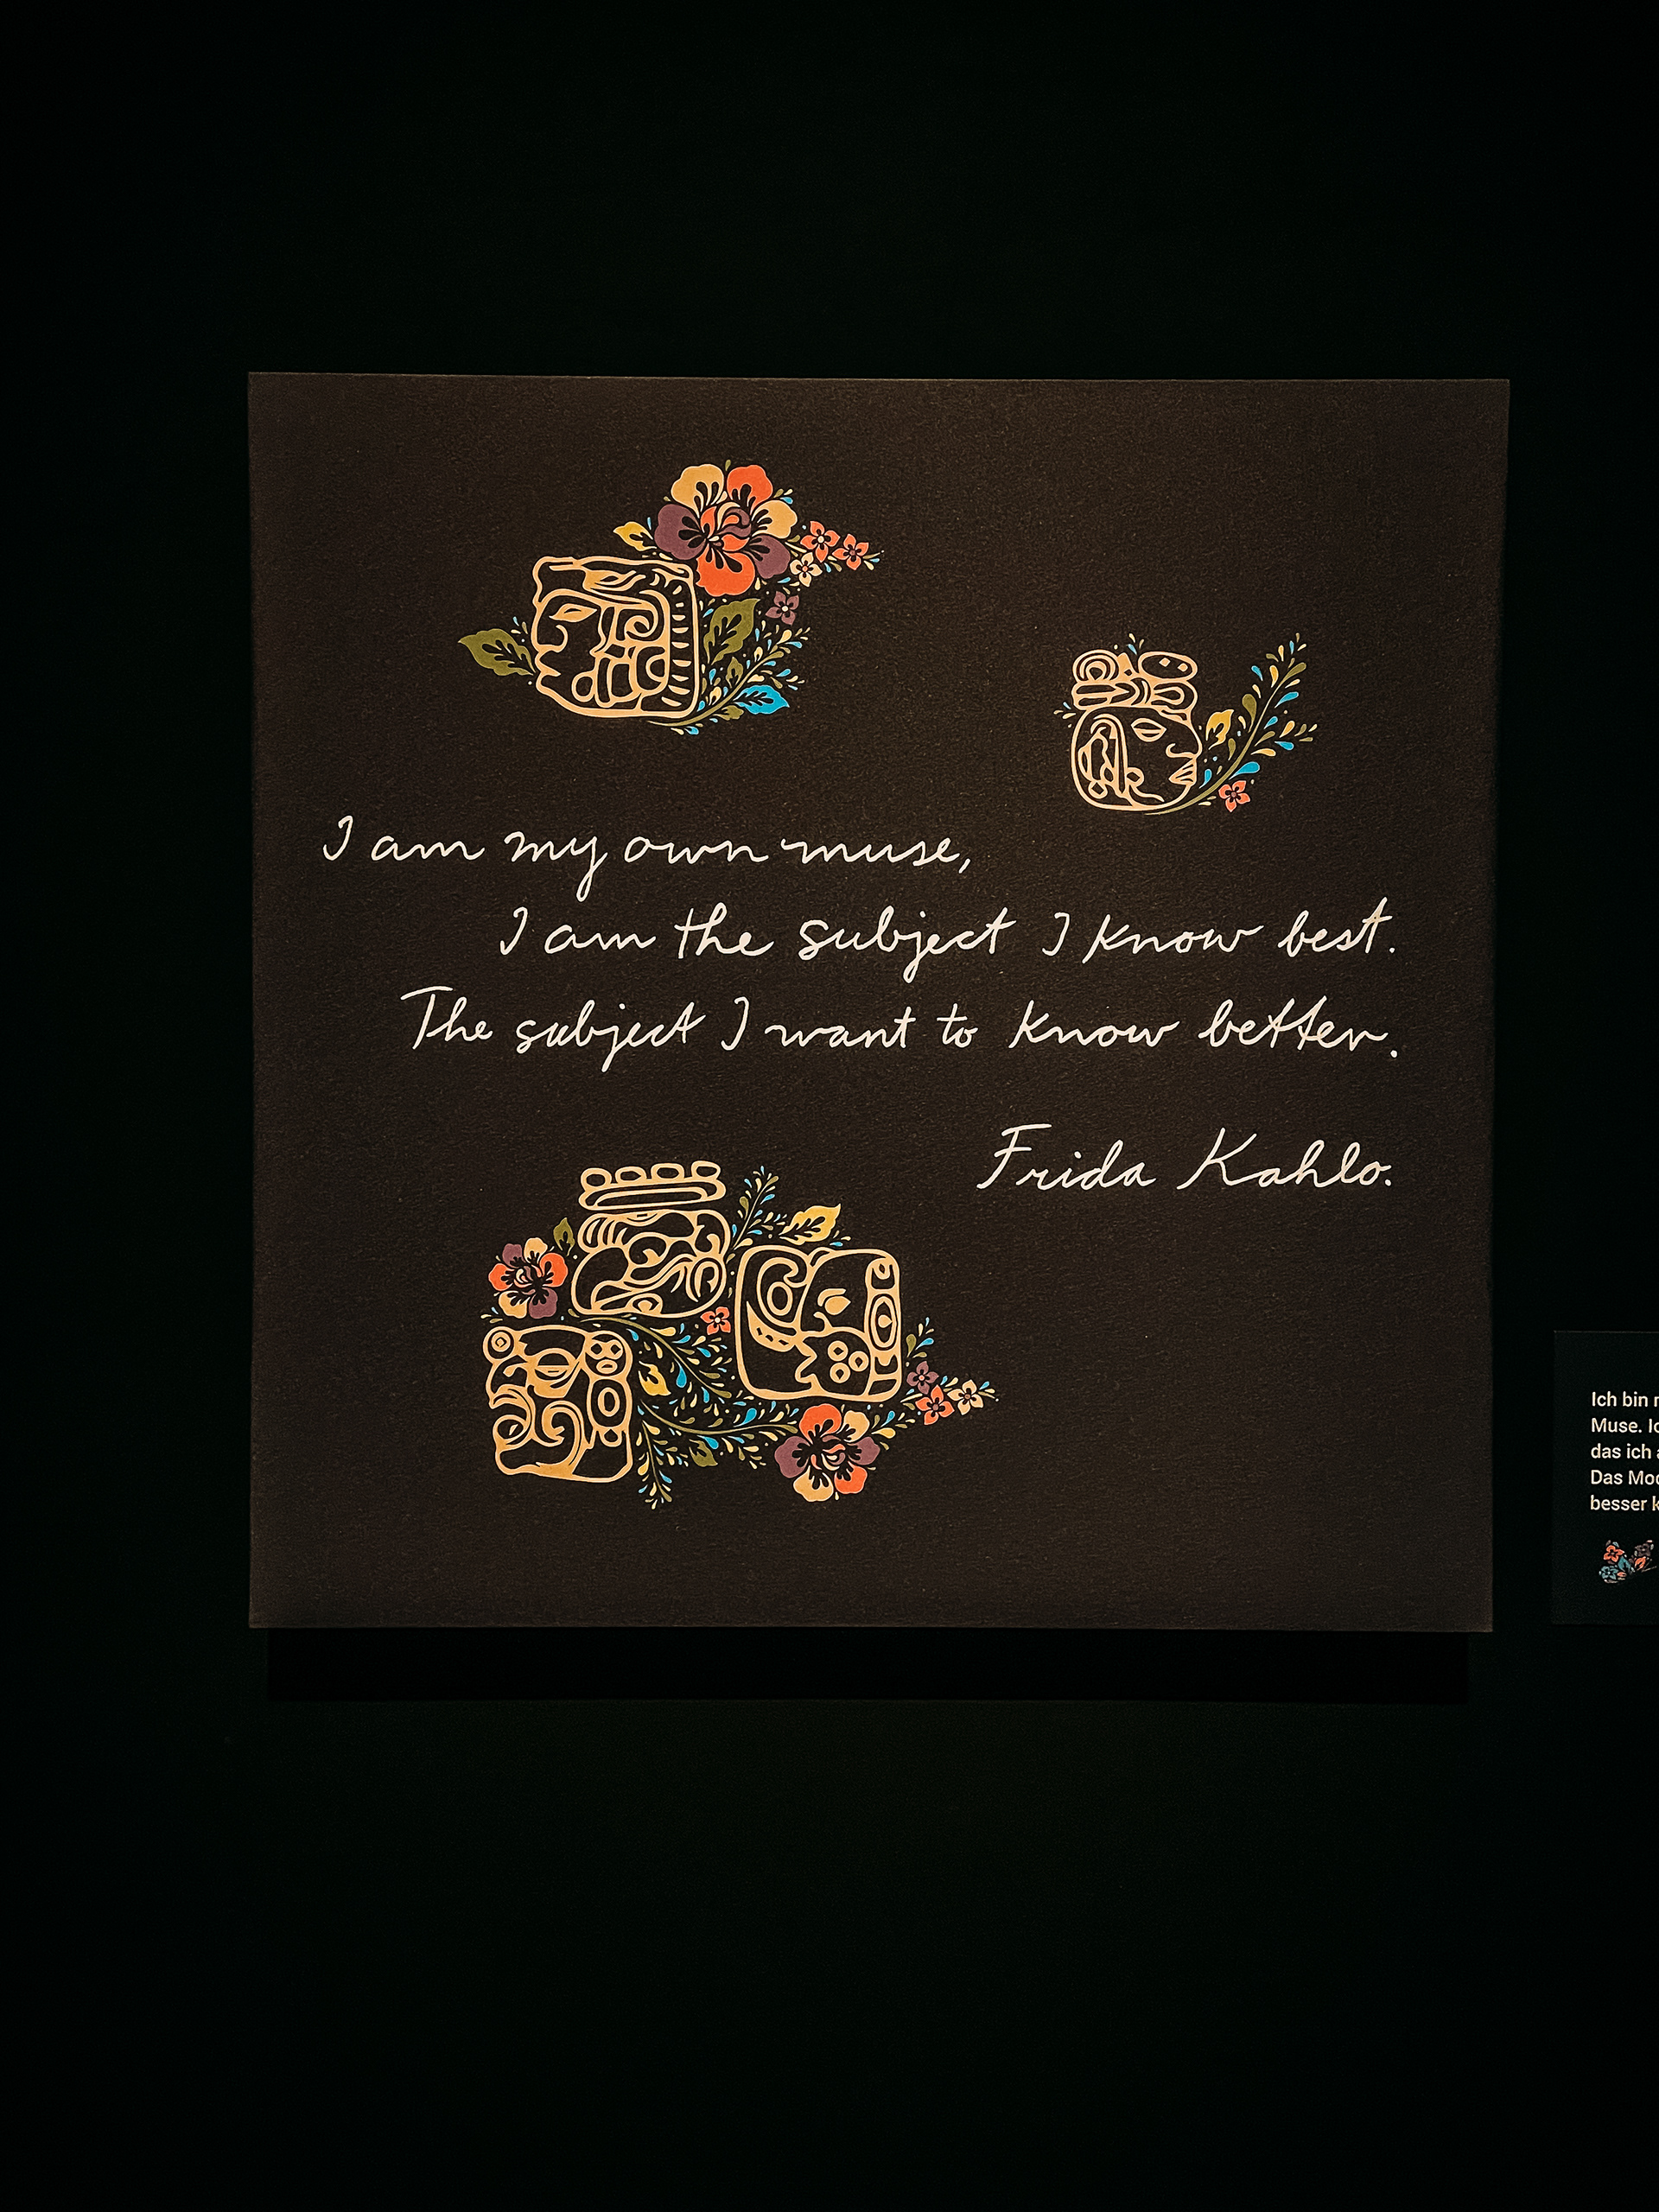 I am my own muse,
I am the subject I know best.
The subject I want to know better.
Frida Kahlo.
Ich bin
Muse.
das ich
Das
besser